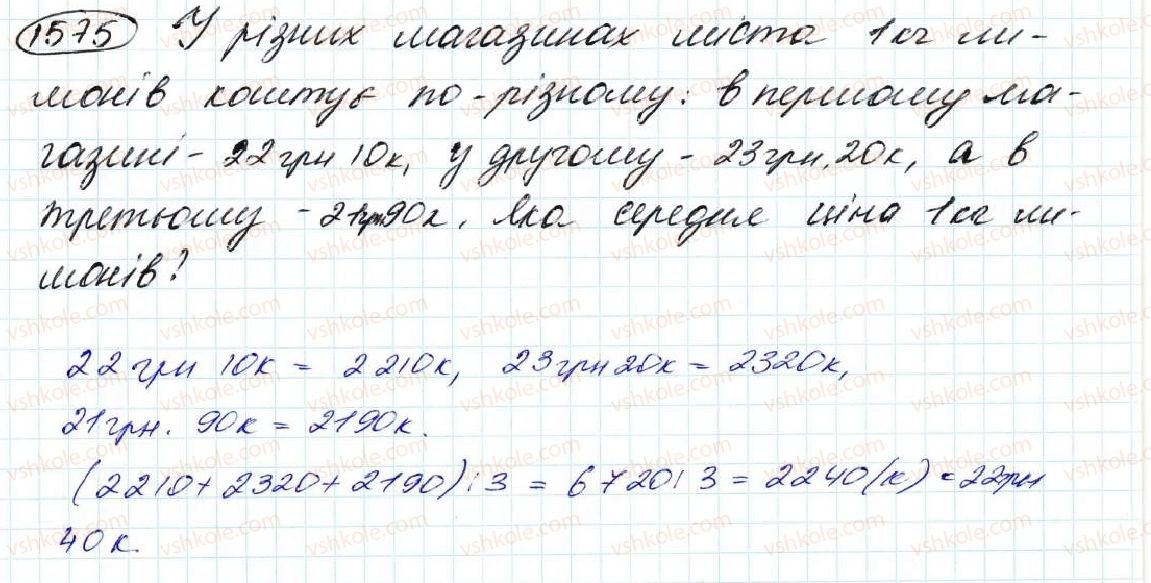 1575 У різних магазинах міста 1кг ли-
монів коштує по-різному: в першому ма-
газині - 22грн 10к, у другому - 23грн.20к, а в
третьому - 21грн90к. Яка середня ціна 1кг ли-
монів?
22грн 10к = 2210к, 23грн20к = 2320к,
21грн. 90к = 2190к.
(2210+2320+2190):3 = 6720:3 = 2240(к) = 22грн
40к.